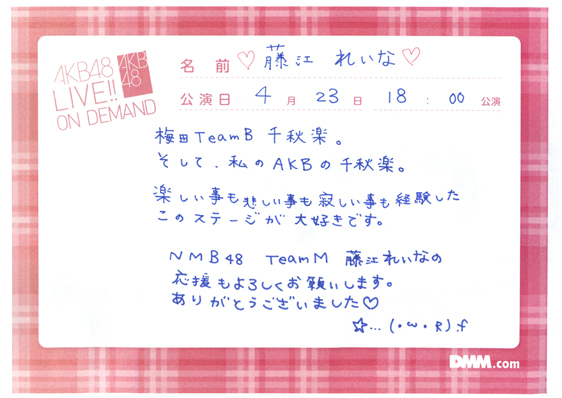 AKB48
LIVE!!
ON DEMAND
AKB
48
名 前 ♡藤江 れいな♡
公演日 4 月 23 日 18 : 00 公演
梅田TeamB 千秋楽。
そして、私のAKBの千秋楽。
楽しい事も悲しい事も寂しい事も経験した
このステージが大好きです。
NMB48 TeamM 藤江れいなの
応援もよろしくお願いします。
ありがとうございました♡
☆…(・ω・R):f
DMM.com